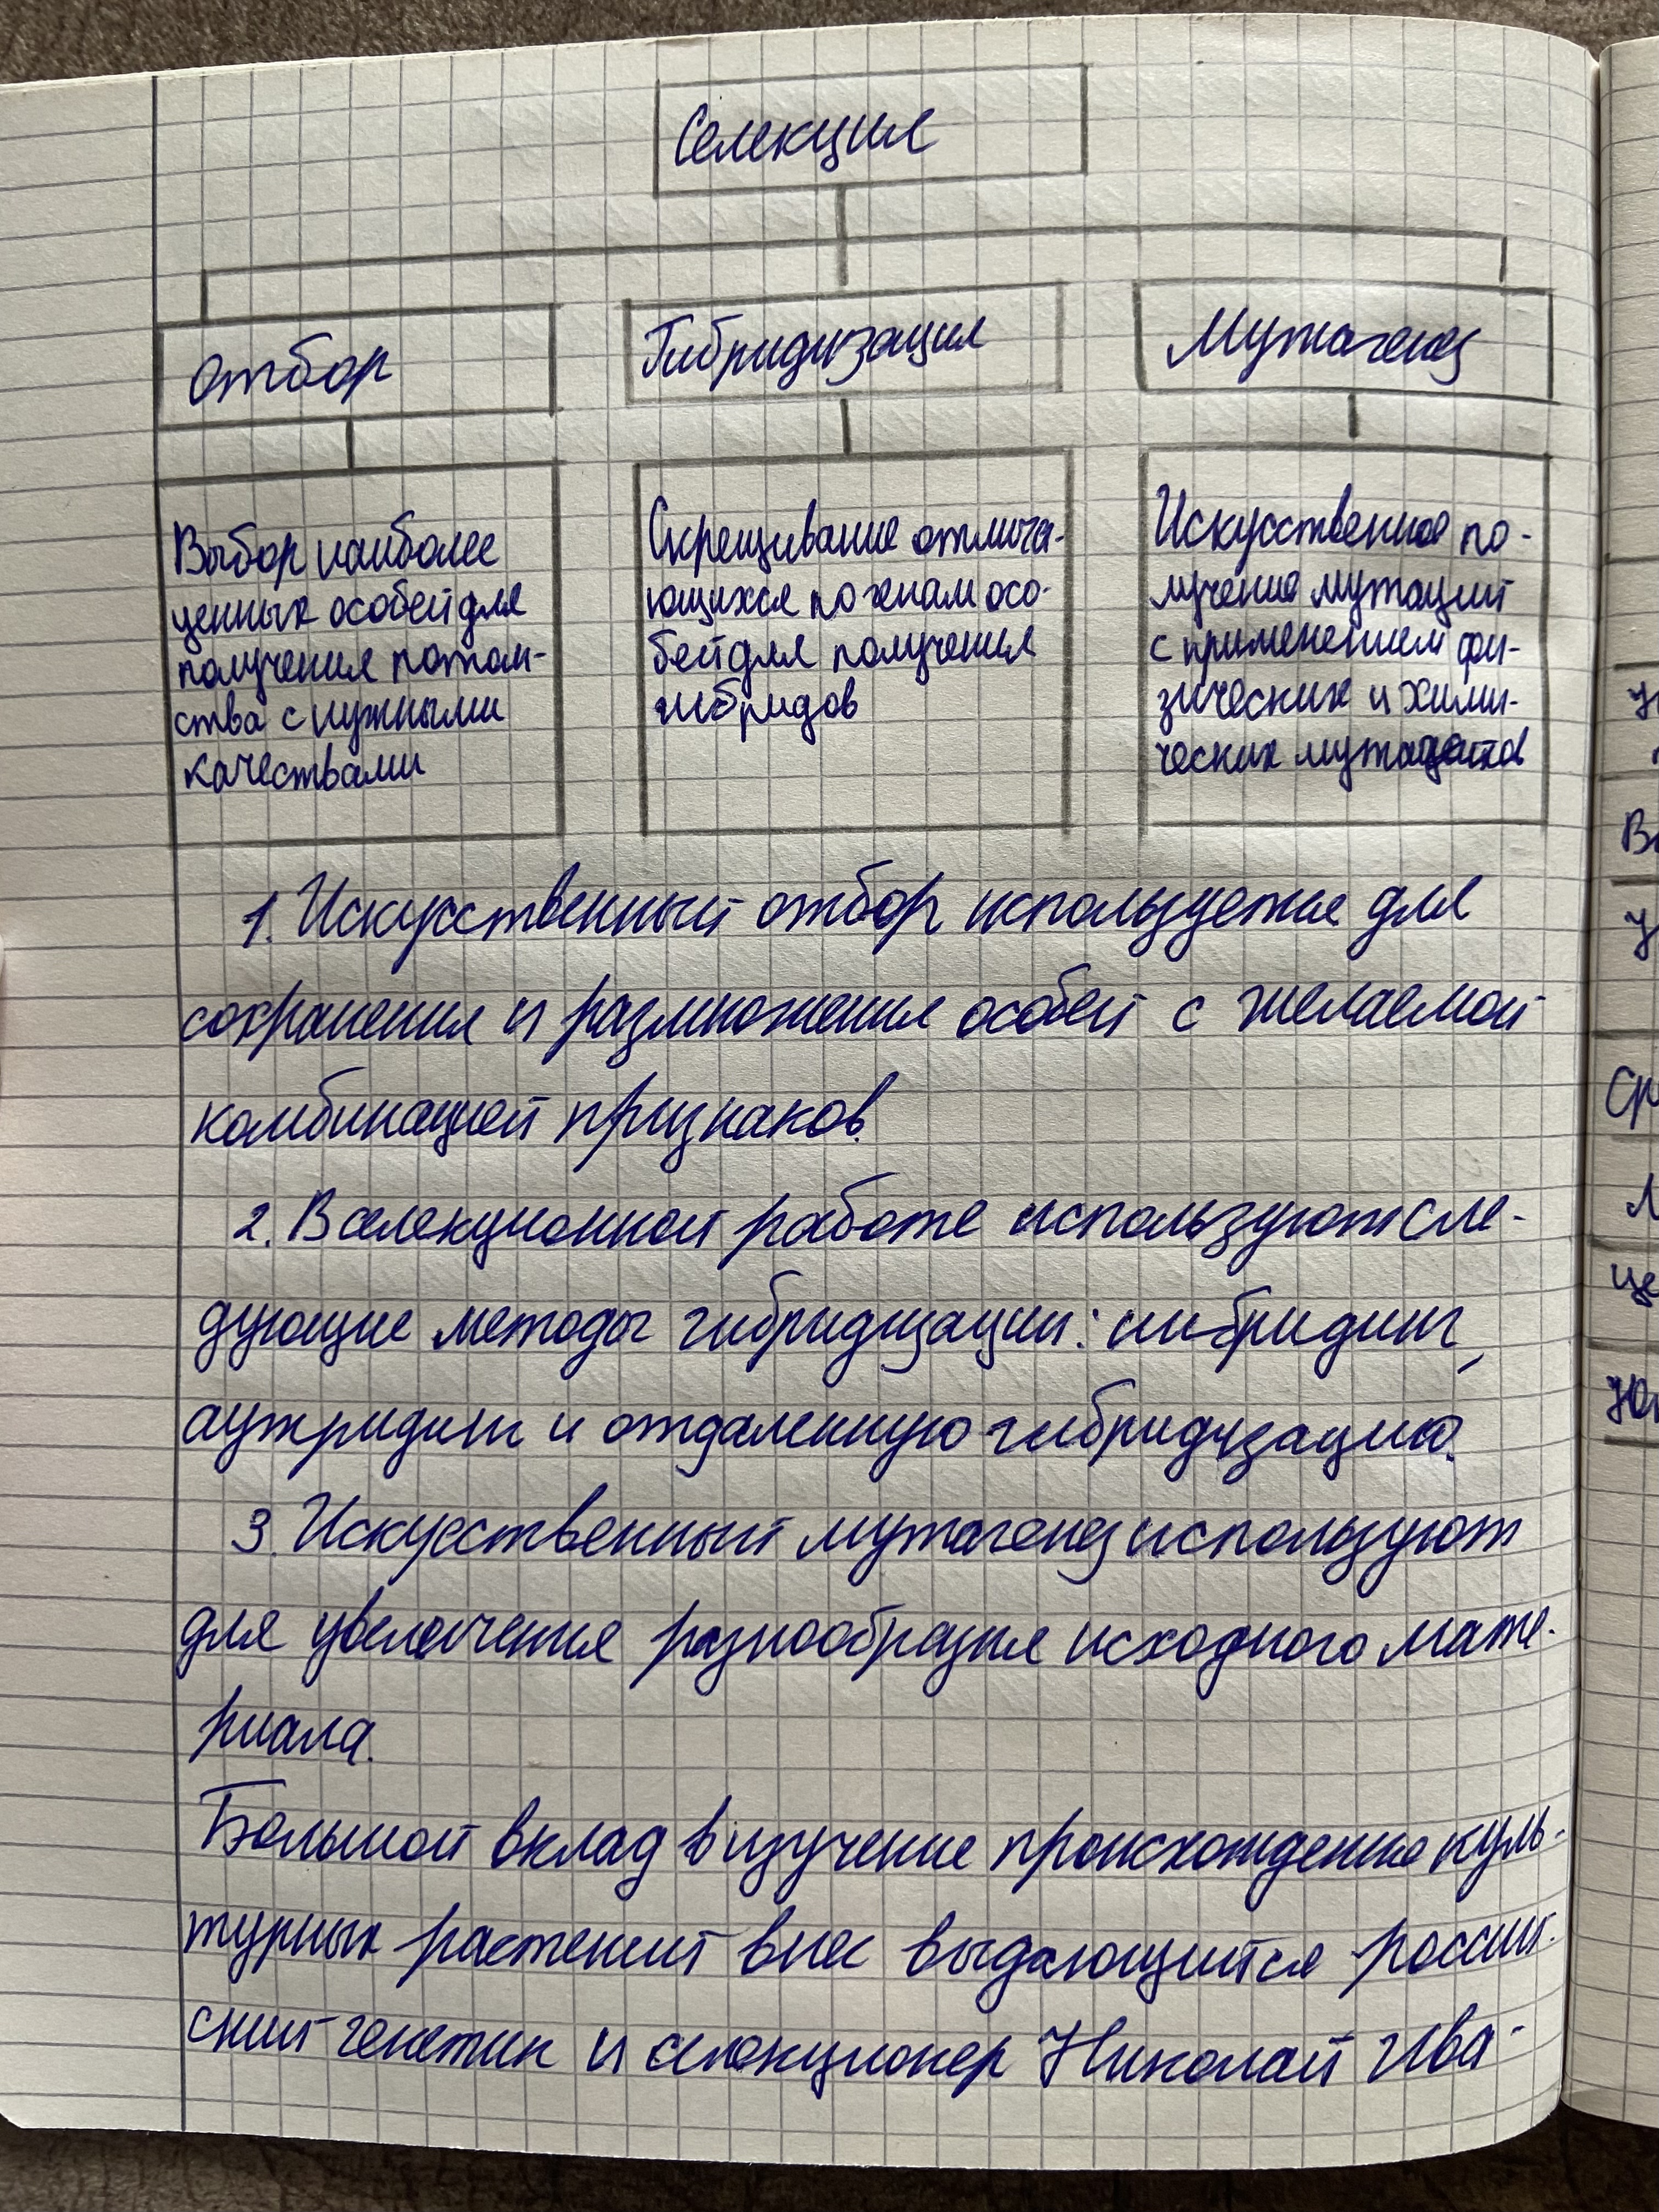 Селекция
Отбор
Гибридизация
Мутагенез
Выбор наиболее
ценных особей для
получения потом-
ства с нужными
качествами
Скрещивание отлича-
ющихся по генам осо-
бей для получения
гибридов
Искусственное по-
лучение мутаций
с применением фи-
зических и хими-
ческих
1. Искусственный отбор используется для
сохранения и размножения особей с желаемой
комбинацией признаков.
2. В селекционной работе используют сле-
дующие методы гибридизации: инбридинг,
аутридинг и отдаленную гибридизацию.
3. Искусственный мутагенез используют
для увеличения разнообразия исходного мате-
риала.
Большой вклад в изучение происхождение куль-
турных растений внес выдающийся россий-
ский генетик и селекционер Николай Ива-